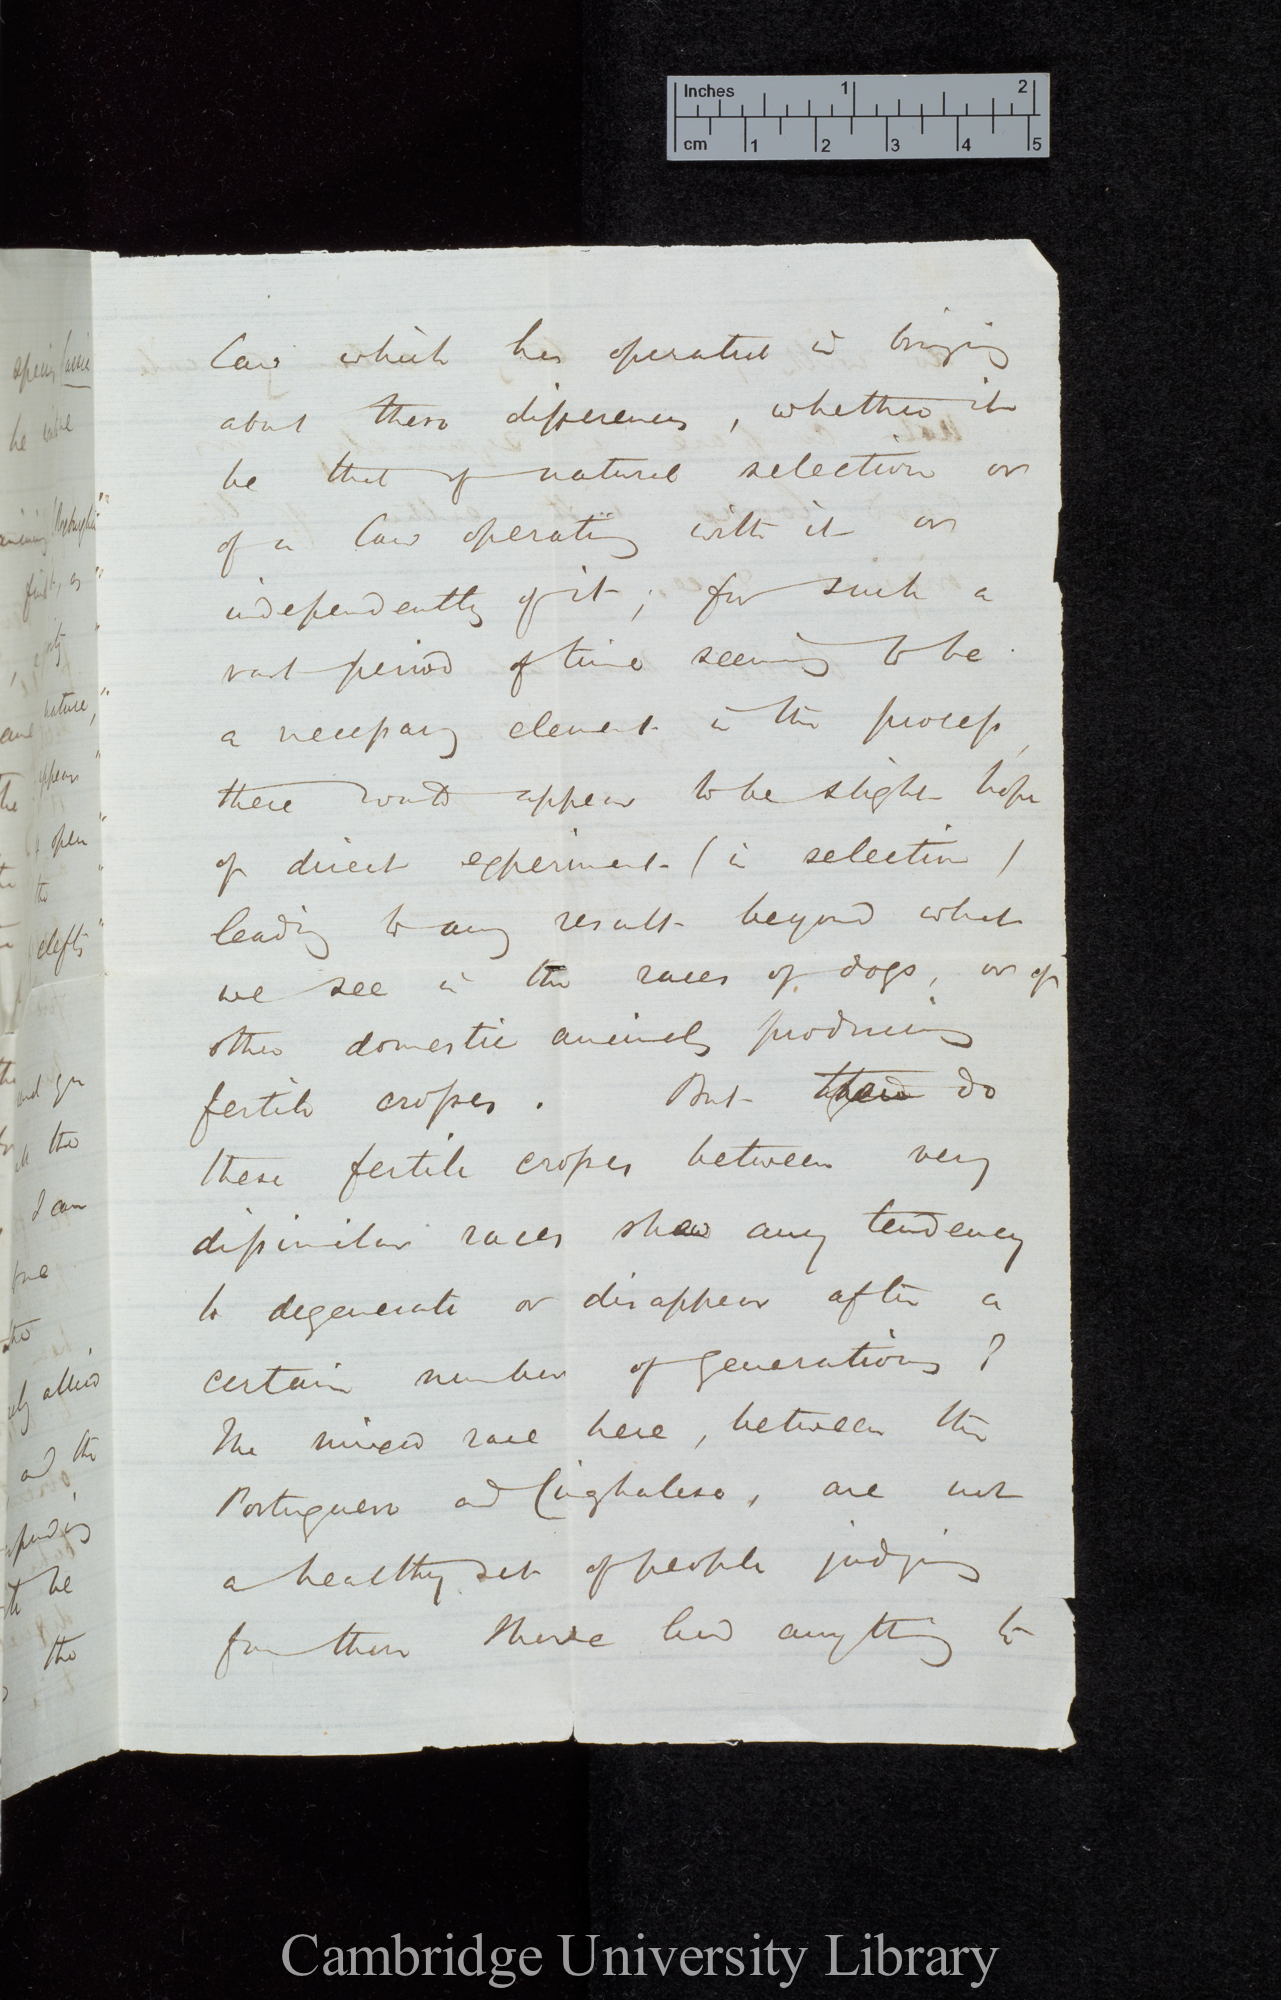 Inches 1 2
cm 1 2 3 4 5
law which has operated in bringing
about these differences, whether it
be that of natural selection or
of a law operating with it or
independently of it; for such a
vast period of time seeming to be
a necessary element in the process,
there would appear to be slight hope
of direct experiment (in selection)
leading to any result beyond what
we see in the races of dogs, or of
other domestic animals producing
fertile crosses. But do
these fertile crosses between very
dissimilar races shew any tendency
to degenerate or disappear after a
certain number of generations?
The mixed race here, between the
Portuguese and Cinghalese, are not
a healthy set of people judging
from those I have had anything to
nature,"
appears "
open "
the "
clefts "
and you
the
I can
allied
and the
be
the
Cambridge University Library